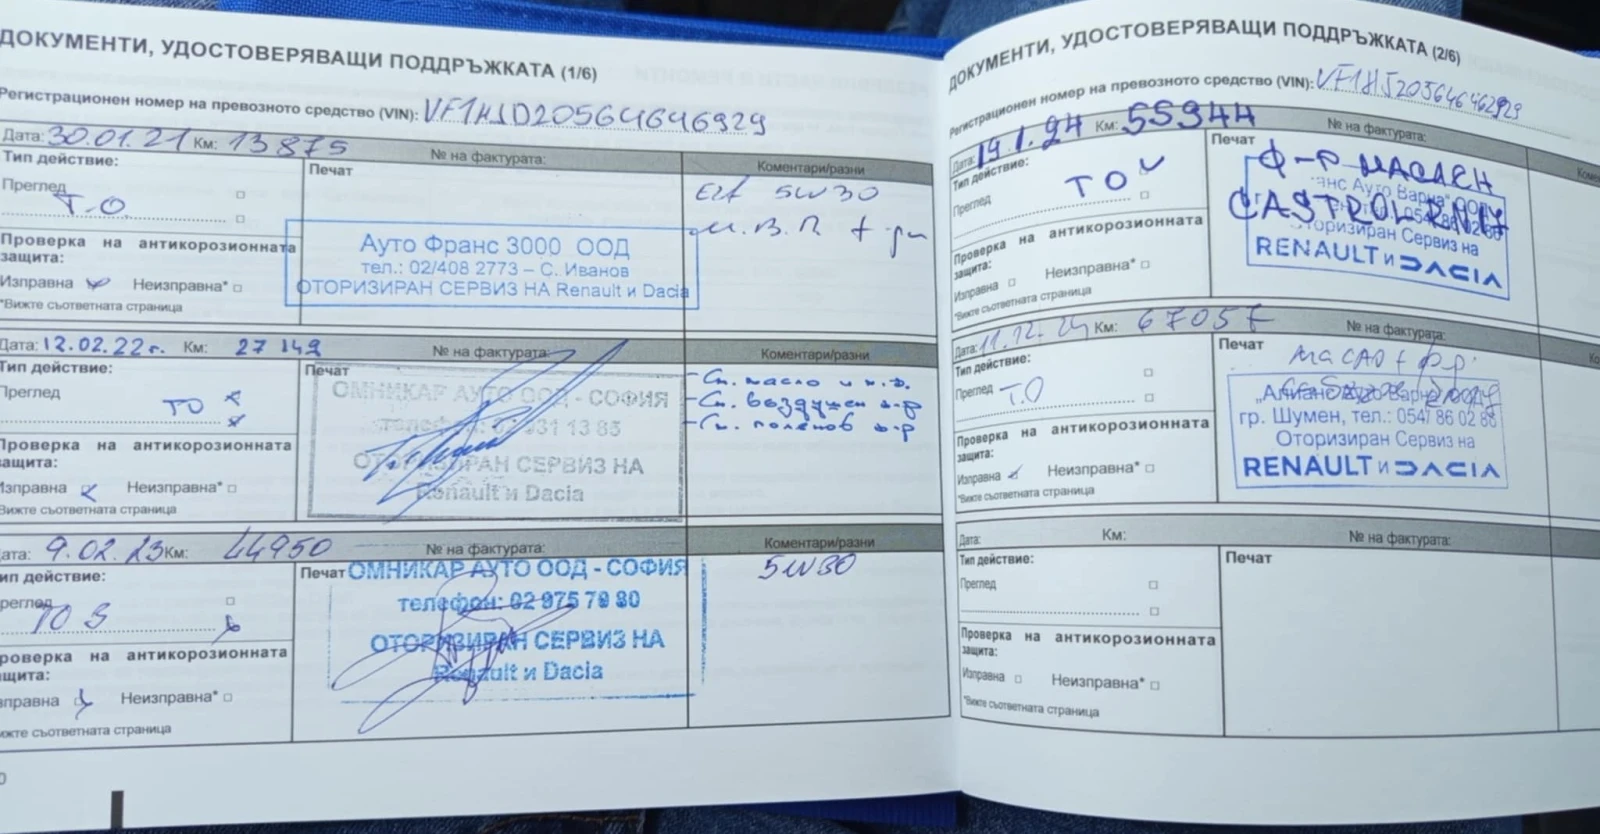 ДОКУМЕНТИ, УДОСТОВЕРЯВАЩИ ПОДДРЪЖКАТА (1/6)
Регистрационен номер на превозното средство (VIN):
Дата: 30.01.21 Км: 13875 № на фактурата:
Тип действие:
Печат
Коментари/разни
Преглед
Т.О.
5W30
Ауто Франс 3000 ООД
тел.: 02/408 2773 – С. Иванов
ОТОРИЗИРАН СЕРВИЗ НА Renault и Dacia
Проверка на антикорозионната
защита:
Изправна Неизправна*
*Вижте съответната страница
Дата: 12.02.22г. Км: 27149 № на фактурата:
Тип действие:
Печат
Коментари/разни
Преглед
ТО
ОМНИКАР АУТО ООД - СОФИЯ
телефон: 02 931 13 85
ОТОРИЗИРАН СЕРВИЗ НА
Renault и Dacia
- См. масло и м.ф.
- См. въздушен ф-р
- См. поленов ф-р
Проверка на антикорозионната
защита:
Изправна Неизправна*
Вижте съответната страница
Дата: 9.02.23 Км: 44950 № на фактурата:
Тип действие:
Печат
Коментари/разни
Преглед
ТО 3
5W30
ОМНИКАР АУТО ООД - СОФИЯ
телефон: 02 975 79 80
ОТОРИЗИРАН СЕРВИЗ НА
Renault и Dacia
Проверка на антикорозионната
защита:
Изправна Неизправна*
Вижте съответната страница
ДОКУМЕНТИ, УДОСТОВЕРЯВАЩИ ПОДДРЪЖКАТА (2/6)
Регистрационен номер на превозното средство (VIN):
Дата: 19.1.24 Км: 55944 № на фактурата:
Тип действие:
Печат
Преглед
ТО
Ф-Р МАСЛЕН
CASTROL RN17
Ауто Варна" ООД
Оторизиран Сервиз на
RENAULT и DACIA
Проверка на антикорозионната
защита:
Изправна Неизправна*
*Вижте съответната страница
Дата: 11.12.24 Км: 67057 № на фактурата:
Тип действие:
Печат
Преглед
Т.О
масло + ф-р
Ауто Варна
гр. Шумен, тел.: 054/ 86 02 86
Оторизиран Сервиз на
RENAULT и DACIA
Проверка на антикорозионната
защита:
Изправна Неизправна*
*Вижте съответната страница
Дата: Км: № на фактурата:
Тип действие:
Печат
Преглед
Проверка на антикорозионната
защита:
Изправна Неизправна*
*Вижте съответната страница